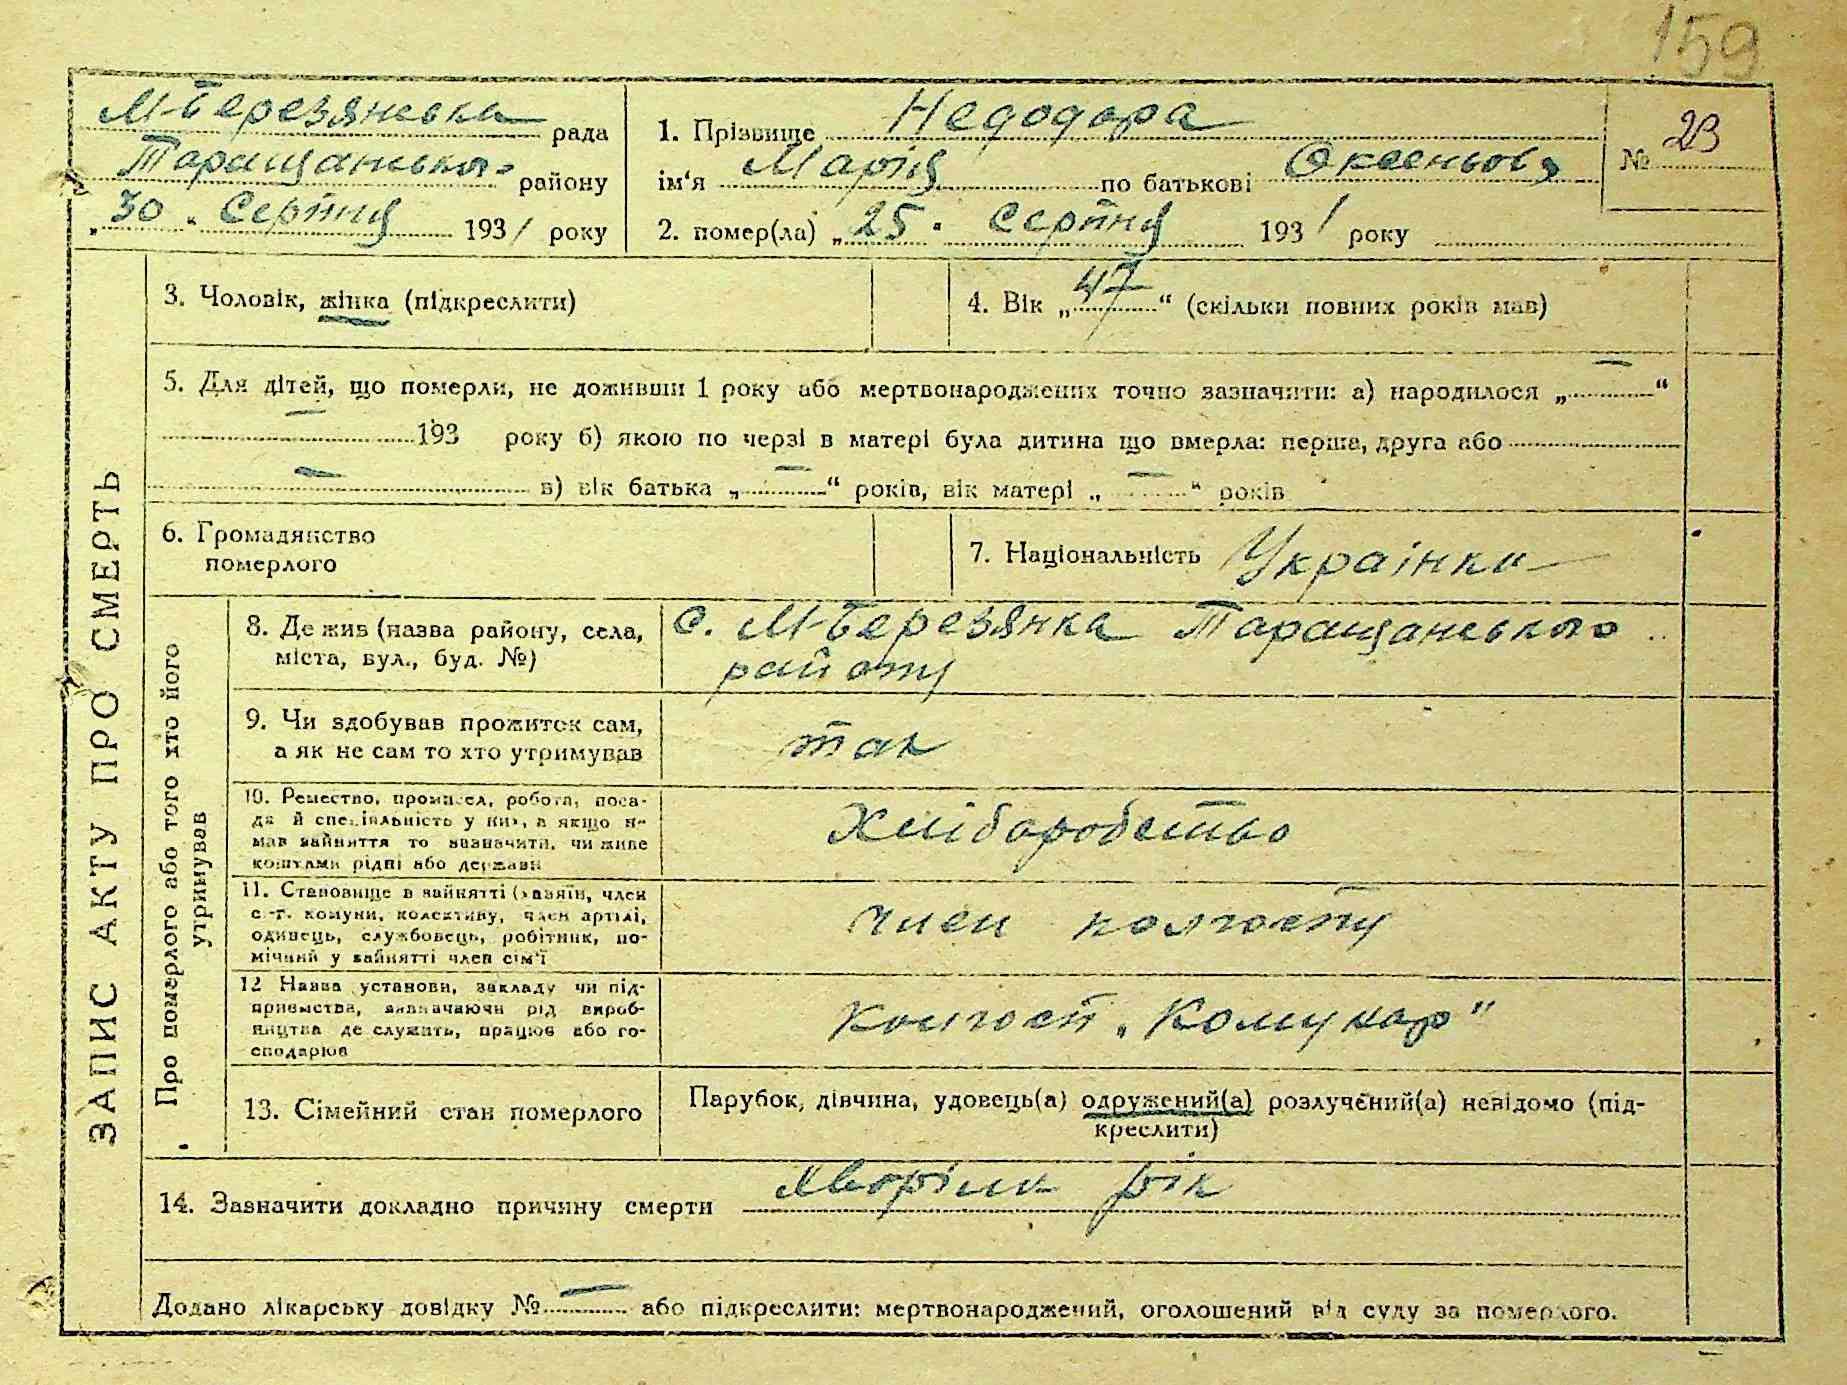 159
М-Березянська рада
Таращанського району
„30“ Серпня 1931 року
1. Прізвище Недодора
ім'я Марія по батькові
2. помер(ла) „25“ Серпня 1931 року
№ 23
ЗАПИС АКТУ ПРО СМЕРТЬ
3. Чоловік, жінка (підкреслити)
4. Вік „47“ (скільки повних років мав)
5. Для дітей, що померли, не доживши 1 року або мертвонароджених точно зазначити: а) народилося „—“
— 193 року б) якою по черзі в матері була дитина що вмерла: перша, друга або
— в) вік батька „—“ років, вік матері „—“ років
6. Громадянство
померлого
7. Національність Українка
Про померлого або того хто його
утринував
8. Де жив (назва району, села,
міста, вул., буд. №)
с. М-Березянка Таращанського
району
9. Чи здобував прожиток сам,
а як не сам то хто утримував
так
10. Ремество, промисел, робота, поса-
да й спеціяльність у них, а якщо н-
мав зайняття то зазначити, чи живе
коштами рідні або держави
Хліборобство
11. Становище в зайнятті (хазяїн, член
с.-г. комуни, колективу, член артілі,
одинець, службовець, робітник, по-
мічний у зайнятті член сім'ї
член колгоспу
12 Назва установи, закладу чи під-
приємства, визначаючи рід вироб-
ництва де служить, працює або го-
сподарює
Колгосп „Комунар"
13. Сімейний стан померлого
Парубок, дівчина, удовець(а) одружений(а) розлучений(а) невідомо (під-
креслити)
14. Зазначити докладно причину смерти рік
Додано лікарську довідку №— або підкреслити: мертвонароджений, оголошений від суду за померлого.